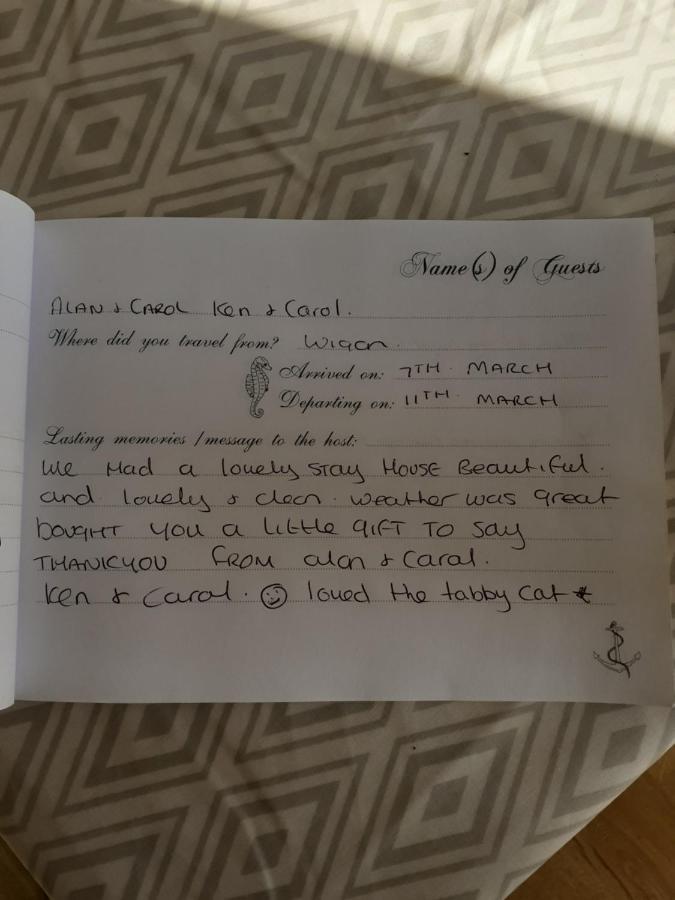 Name(s) of Guests
ALAN & CAROL Ken & Carol.
Where did you travel from? Wigan.
Arrived on: 7TH. MARCH
Departing on: 11TH. MARCH
Lasting memories / message to the host:
We Had a lovely STAY HOUSE Beautiful.
and lovely & clean. weather was great
bought you a little GIFT TO Say
THANKYOU FROM alan & Carol.
Ken & Carol. ☺ loved the tabby Cat *